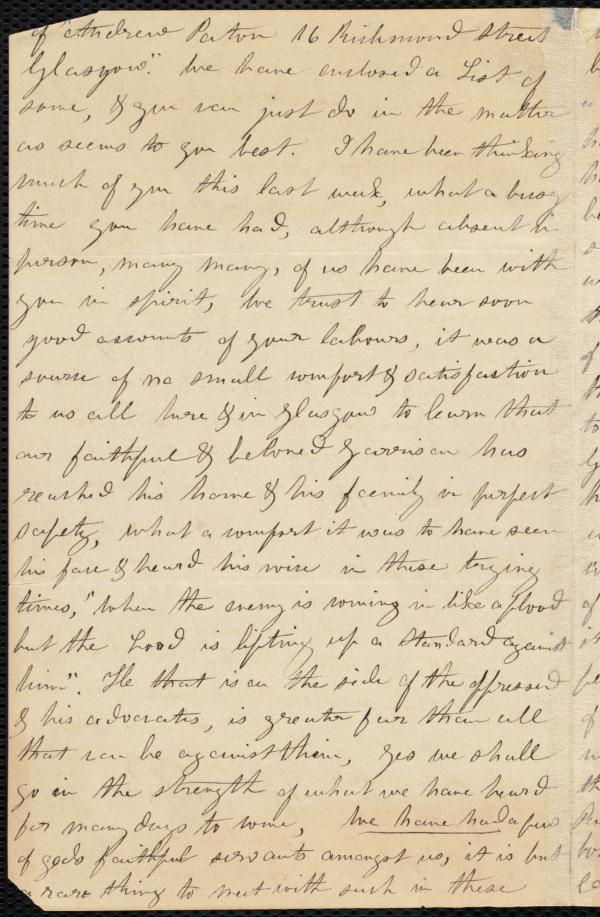 of "Andrew Paton 16 Richmond Street
Glasgow." We have enclosed a List of
some, & you can just do in the matter
as seems to you best. I have been thinking
much of you this last week, what a busy
time you have had, although absent in
person, many many, of us have been with
you in spirit, We trust to hear soon
good accounts of your labours, it was a
source of no small comfort & satisfaction
to us all here & in Glasgow to learn that
our faithful & beloved Garrison has
reached his home & his family in perfect
safety, what a comfort it was to have seen
his face & heard his voice in these trying
times, "when the enemy is coming in like a flood
but the Lord is lifting up a standard against
him". He that is on the side of the oppressed
& his advocates, is greater far than all
that can be against them, yes we shall
go in the strength of what we have heard
for many days to come, We have had a few
of gods faithful servants amongst us, it is but
a rare thing to meet with such in these